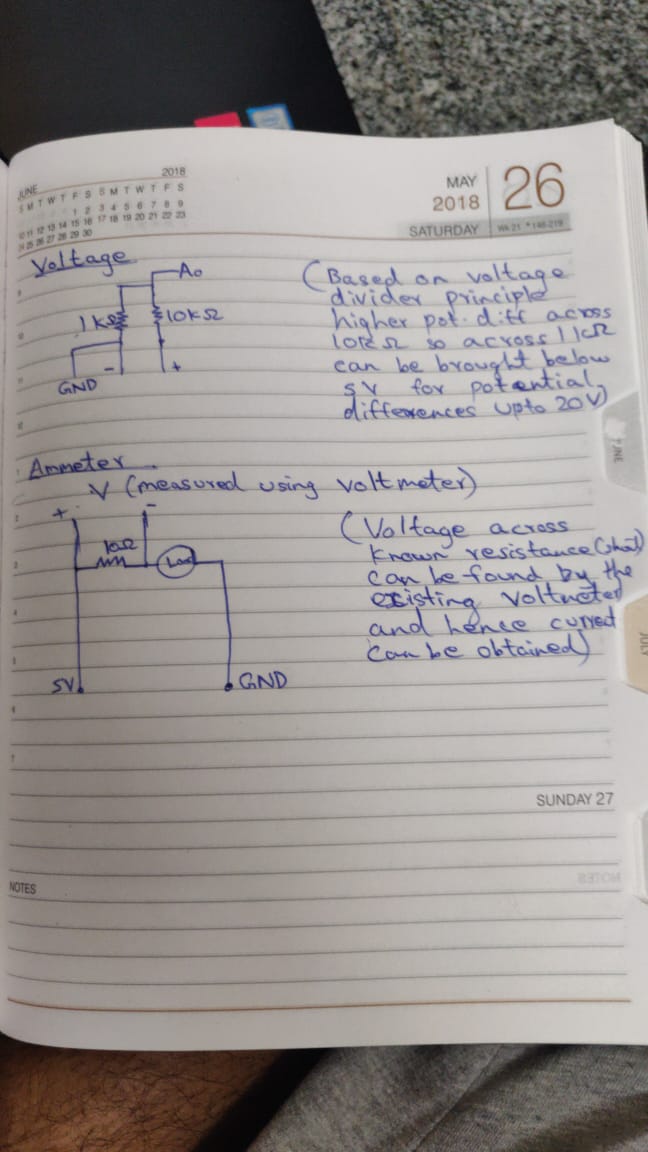 JUNE 2018
S M T W T F S S M T W T F S
1 2 3 4 5 6 7 8 9
10 11 12 13 14 15 16 17 18 19 20 21 22 23
24 25 26 27 28 29 30
MAY
2018
26
SATURDAY
Voltage
A0
1kΩ
10kΩ
GND
-
+
(Based on voltage
divider principle
higher pot. diff across
10kΩ so across 1kΩ
can be brought below
5V for potential
differences upto 20V)
Ammeter
V (measured using voltmeter)
+
-
10Ω
Load
5V
GND
(Voltage across
known resistance
can be found by the
existing voltmeter
and hence current
can be obtained)
JUNE
JULY
SUNDAY 27
NOTES